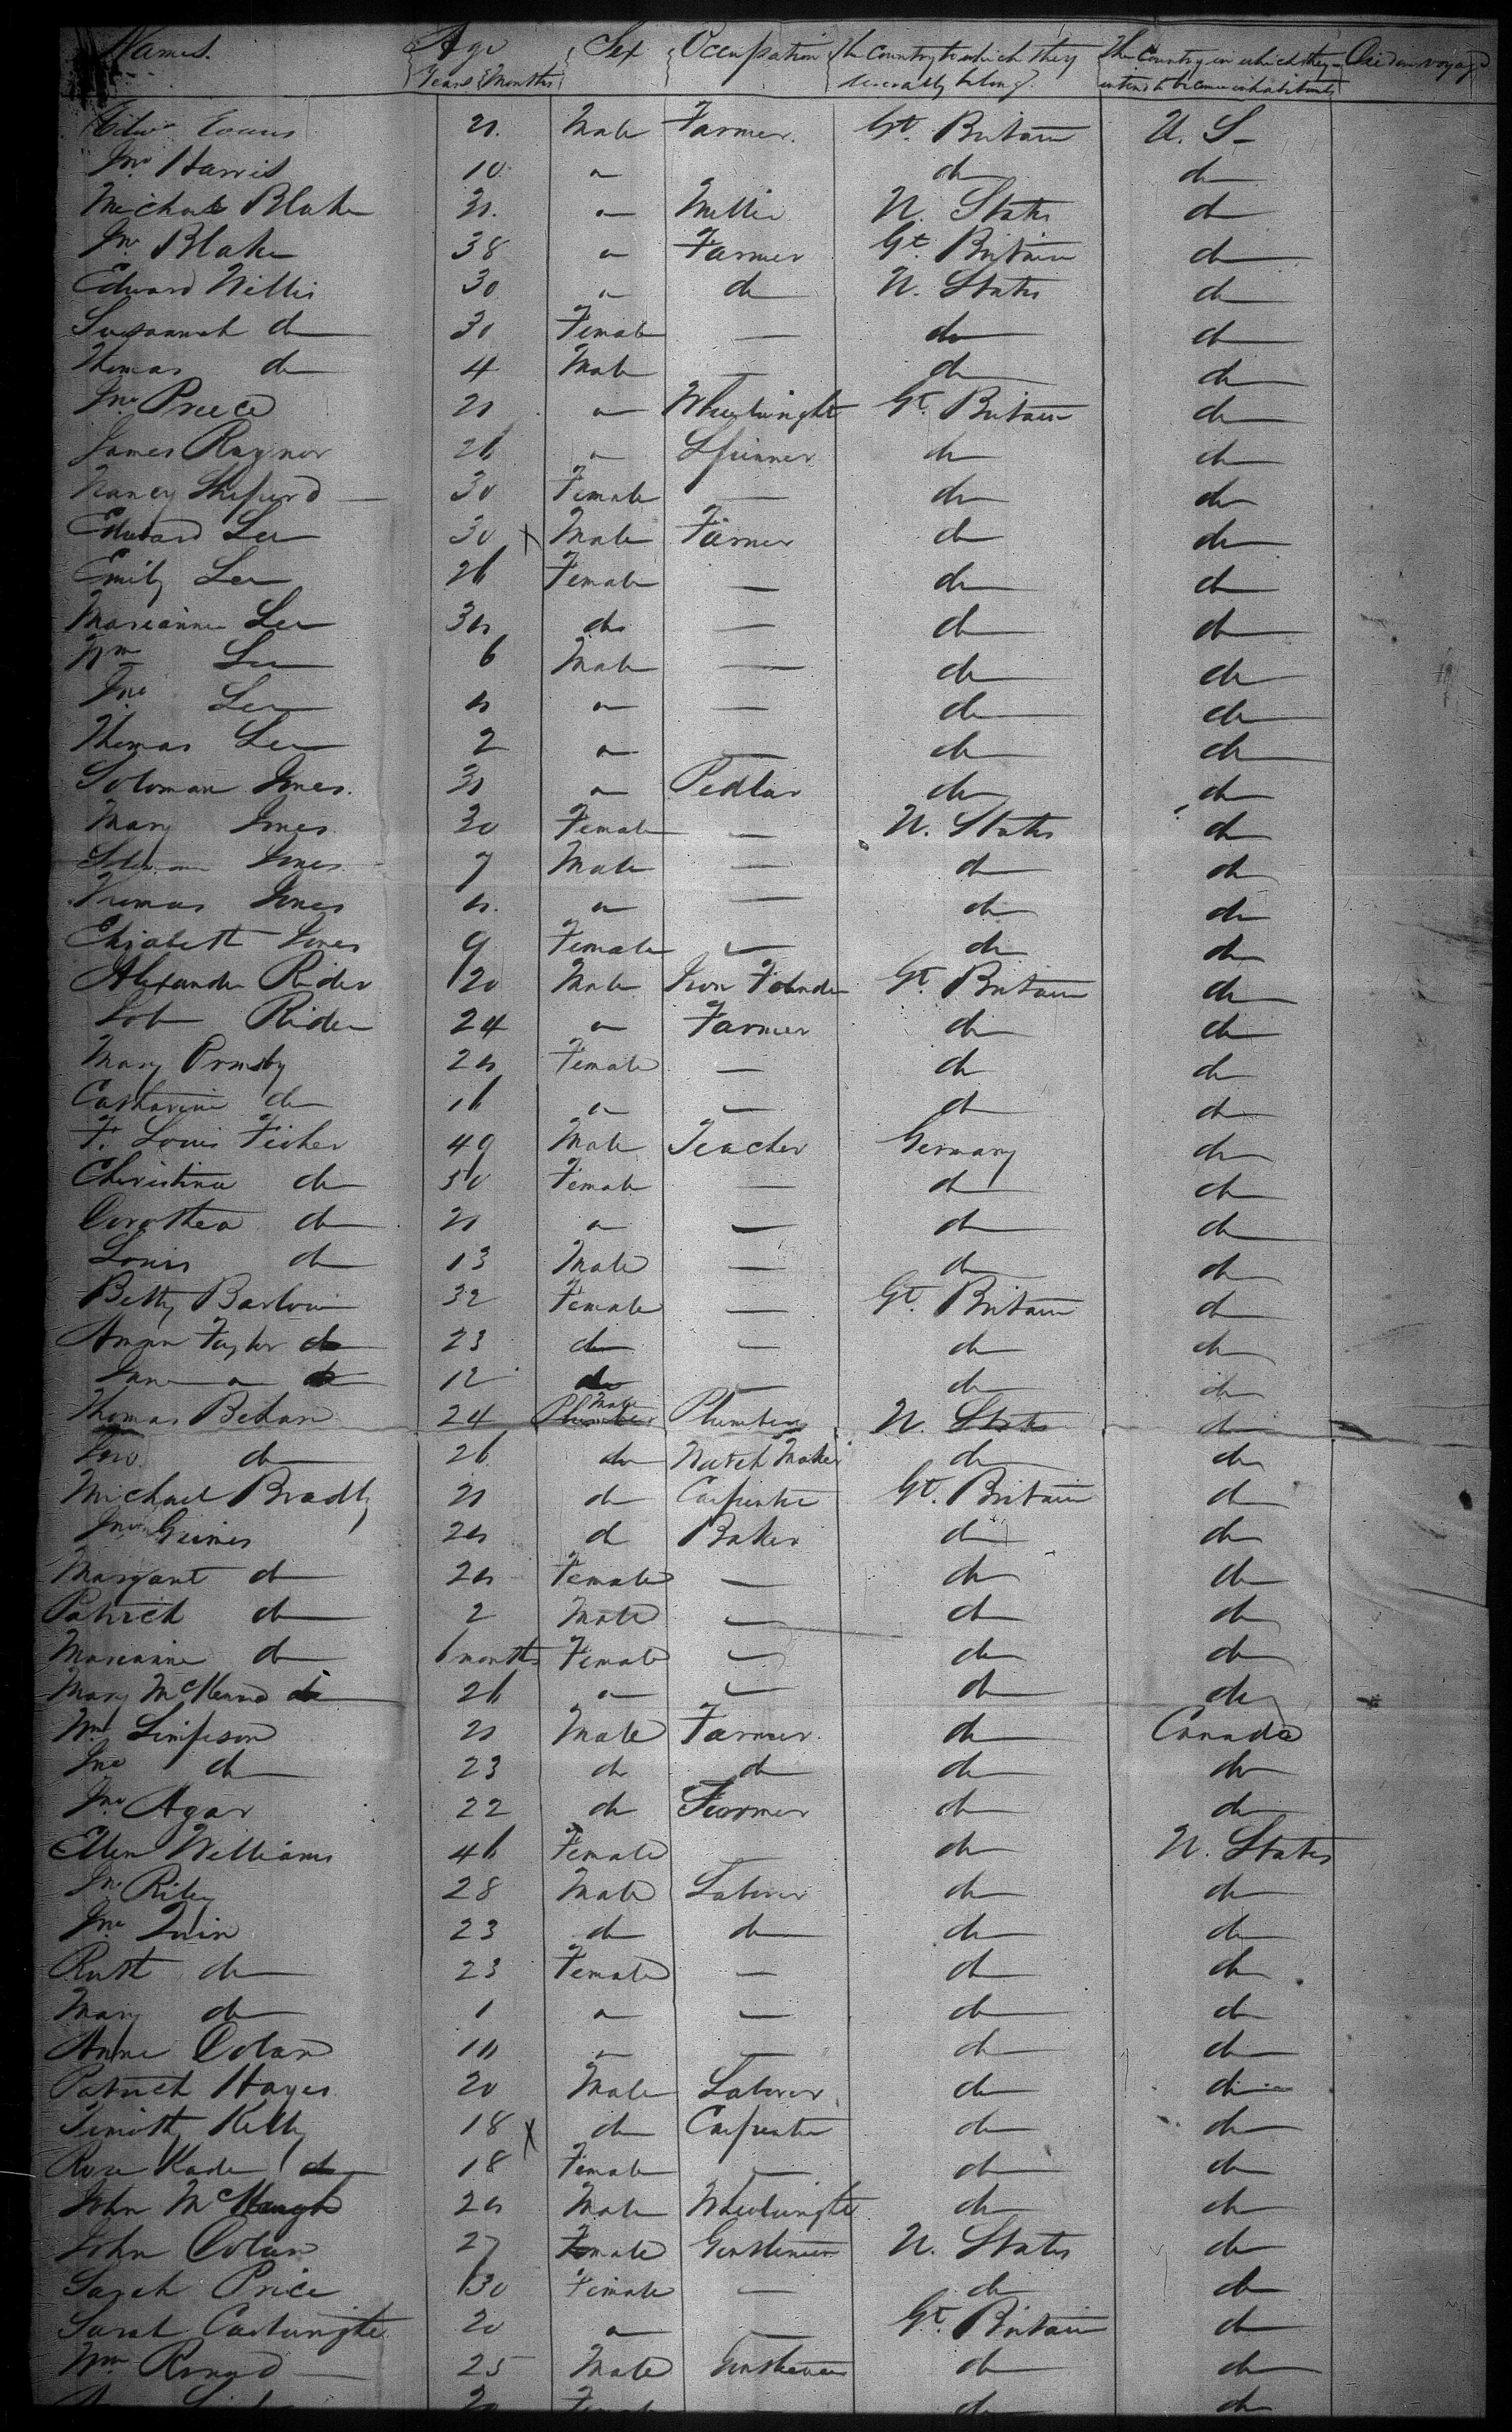 Names. Age Sex Occupation The Country to which they The Country in which they Died on voyage
Years Months severally belong intend to become inhabitants
Edwd Evans 21. Male Farmer. Gt. Britain U. S-
Jno Harris 10 " do do
Michael Blake 31. " Miller U. States do
Jno Blake 38 " Farmer Gt Britain do
Edward Willis 30 " do U. States do
Susannah do 30 Female — do do
Thomas do 4 Male — do do
Jno Preece 21 " Wheelwright Gt. Britain do
James Raynor 26 " Spinner do do
Nancy Sheperd 30 Female — do do
Edward Lee 30 x Male Farmer do do
Emily Lee 26 Female — do do
Marianne Lee do — do do
Wm Lee 6 Male — do do
Jno Lee " — do do
Thomas Lee 2 " — do do
Soloman Jones. 31 " Pedlar do do
Mary Jones 30 Female — U. States do
Soloman Jones 7 Male — do do
Thomas Jones " — do do
Elizabeth Jones 9 Female — do do
Alexander Rider 20 Male Iron Founder Gt. Britain do
Job Rider 24 " Farmer do do
Mary Ormsby Female — do do
Catharine do 16 " — do do
F. Louis Fisher 49 Male Teacher Germany do
Christina do 50 Female — do do
Dorothea do 21 " — do do
Louis do 13 Male — do do
Betty Barlow 32 Female — Gt. Britain do
Taylor do 23 do — do do
Jane " do 12 do — do do
Thomas Behan 24 Plumber Male Plumber U. States do
do 26 do Watch Maker do do
Michael Bradly 21 do Carpenter Gt. Britain do
Jno Grimes do Baker do do
Margaret do Female — do do
Patrick do 2 Male — do do
Marianne do 6 months Female — do do
Mary McKenna do 26 " — do do
Wm Simpson 21 Male Farmer do Canada
Jno do 23 do do do do
Jno Agar 22 do Farmer do do
Ellen Williams 46 Female — do U. States
Jno Riley 28 Male Laborer do do
Jno Quin 23 do do do do
Ruth do 23 Female — do do
Mary do 1 " — do do
Anne Dolan " — do do
Patrick Hayes 20 Male Laborer do do
Timothy Kelly 18 x do Carpenter do do
Rose Kade do 18 Female — do do
John McHugh Male Wheelwright do do
John Dolan 27 Female Gentleman U. States do
Sarah Price 30 Female — do do
Sarah Cartwright 20 " — Gt. Britain do
Wm 25 Male Gentleman do do
20 Female do do